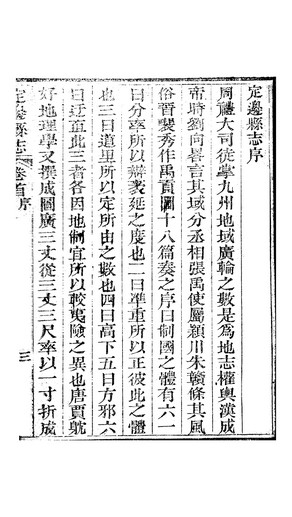 定邊縣志序
周禮大司徒掌九州地域廣輪之數是為地志權輿漢成
帝時劉向畧言其域分丞相張禹使屬潁川朱贛條其風
俗晋裴秀作禹貢圖十八篇奏之序曰制圖之體有六一
曰分率所以辯袤延之度也二曰準重所以正彼此之體
也三曰道里所以定所由之數也四曰高下五曰方邪六
曰迂直此三者各因地制宜所以較夷險之異也唐賈躭
好地理學又撰成圖廣三丈從三丈三尺率以一寸折成
定邊縣志 卷首 序 三